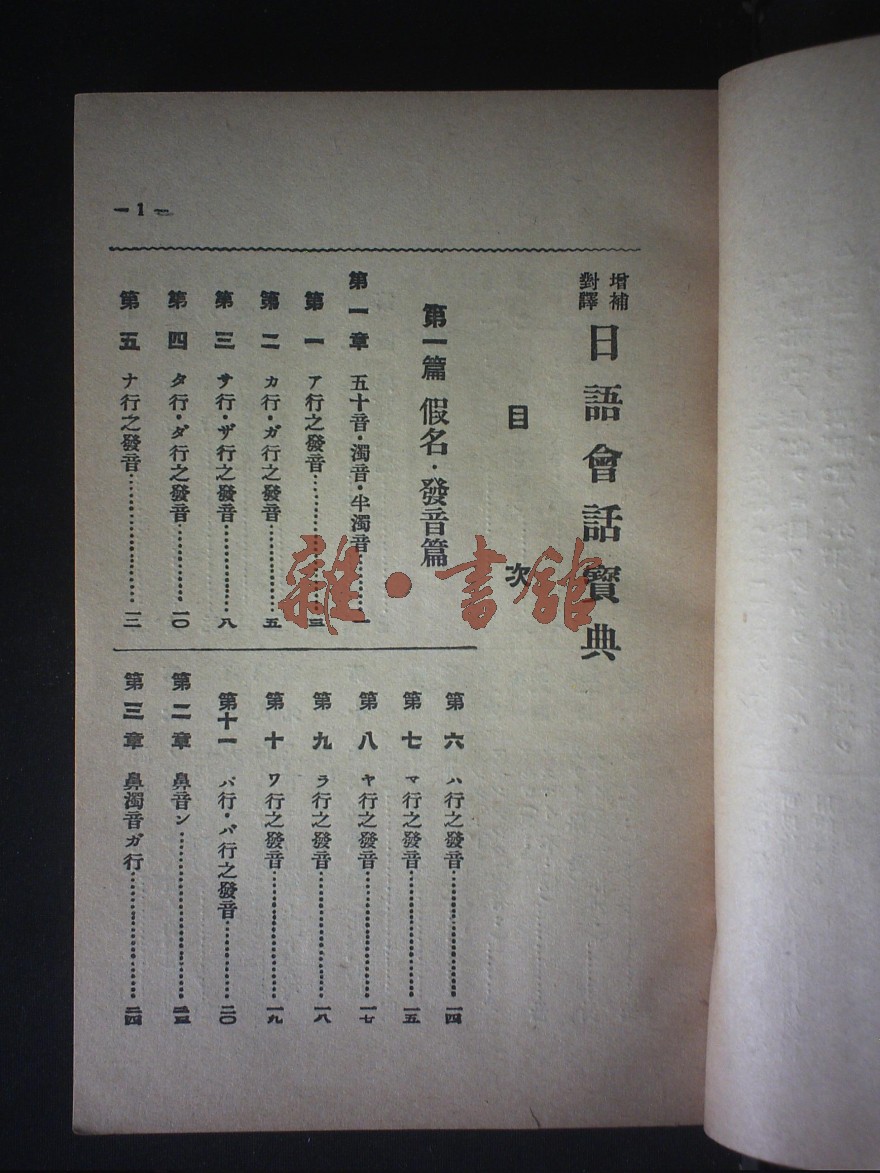 增補
對譯
日語會話寶典
目次
第一篇 假名・發音篇
第一章 五十音・濁音・半濁音…………一
第一 ア行之發音…………三
第二 カ行・ガ行之發音…………五
第三 サ行・ザ行之發音…………八
第四 タ行・ダ行之發音…………一〇
第五 ナ行之發音…………一二
第六 ハ行之發音…………一四
第七 マ行之發音…………一五
第八 ヤ行之發音…………一七
第九 ラ行之發音…………一八
第十 ワ行之發音…………一九
第十一 バ行・パ行之發音…………二〇
第二章 鼻音ン…………二三
第三章 鼻濁音ガ行…………二四
—1—
雜・書館